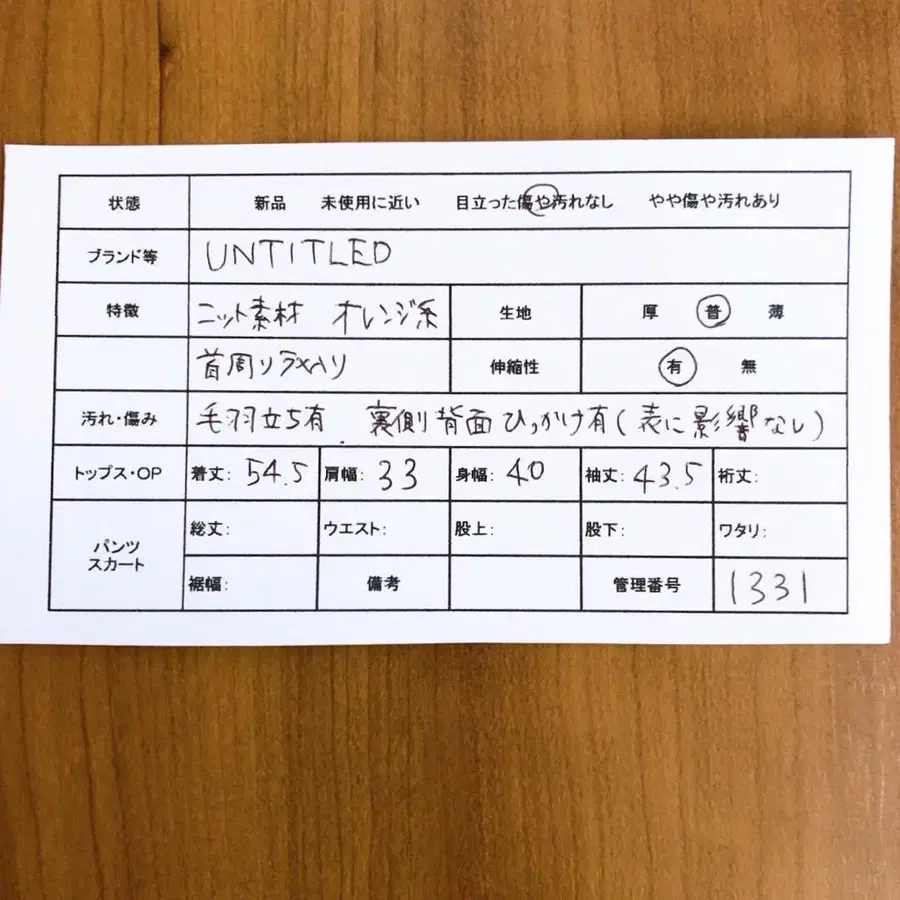 状態 新品 未使用に近い 目立った傷や汚れなし やや傷や汚れあり
ブランド等 UNTITLED
特徴 ニット素材 オレンジ系 生地 厚 普 薄
首周りラメ入り 伸縮性 有 無
汚れ・傷み 毛羽立ち有 裏側背面ひっかけ有(表に影響なし)
トップス・OP 着丈: 54.5 肩幅: 33 身幅: 40 袖丈: 43.5 裄丈:
パンツ スカート 総丈: ウエスト: 股上: 股下: ワタリ:
裾幅: 備考 管理番号 1331